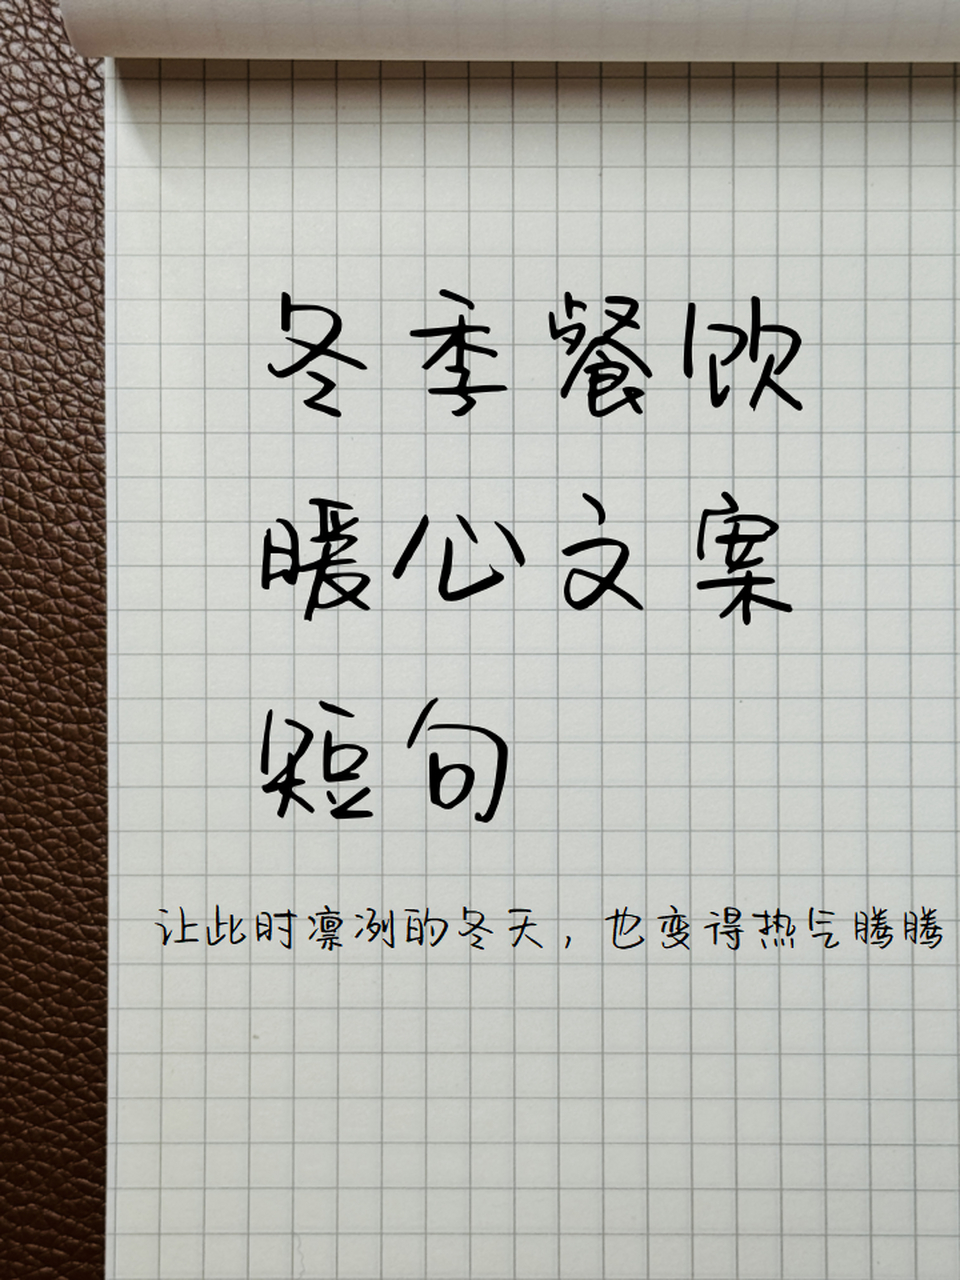 冬季餐饮
暖心文案
短句
让此时凛冽的冬天，也变得热气腾腾